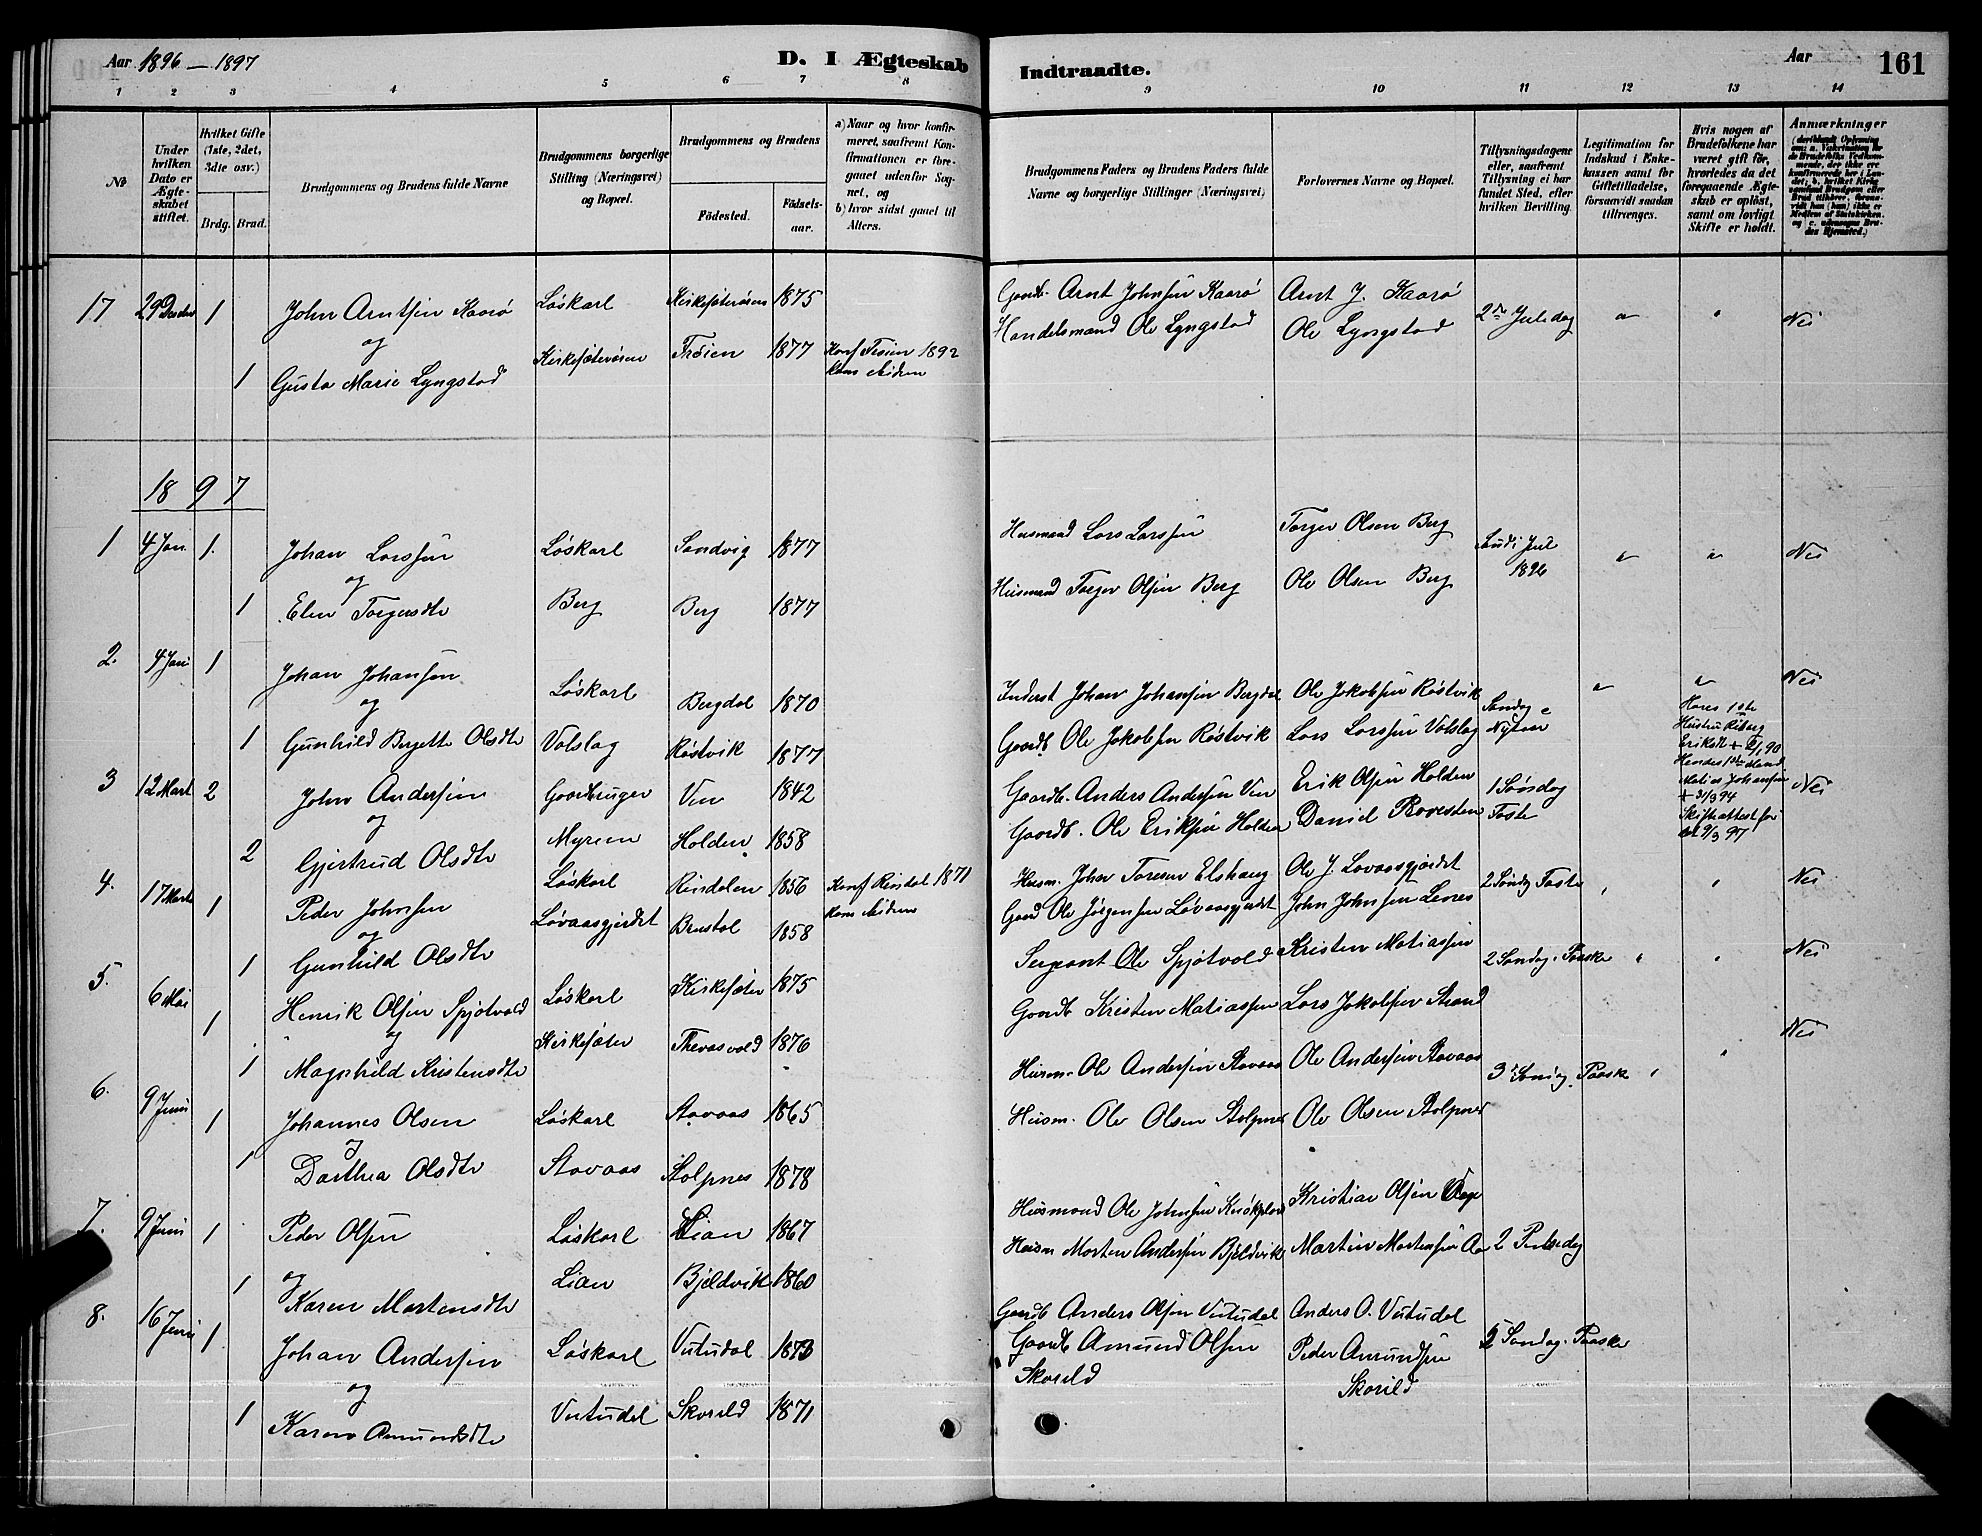 Aar 1896 - 1897
D. I Ægteskab
Indtraadte.
Aar
161
1 2 3 4 5 6 7 8 9 10 11 12 13 14
No
Under hvilken Dato er Ægteskabet stiftet.
Hvilket Gifte (1ste, 2det, 3dte osv.)
Brdg. Brud.
Brudgommens og Brudens fulde Navne
Brudgommens borgerlige Stilling (Næringsvei) og Bopæl.
Brudgommens og Brudens
Födested.
Födsels-aar.
a) Naar og hvor konfirmeret, saafremt Konfirmationen er foregaaet udenfor Sognet, og
b) hvor sidst gaaet til Alters.
Brudgommens Faders og Brudens Faders fulde Navne og borgerlige Stillinger (Næringsvei)
Forlovernes Navne og Bopæl.
Tillysningsdagene eller, saafremt Tillysning ei har fundet Sted, efter hvilken Bevilling.
Legitimation for Indskud i Enkekassen samt for Giftetilladelse, forsaavidt saadan tiltrænges.
Hvis nogen af Brudefolkene har været gift för, hvorledes da det foregaaende Ægteskab er oplöst, samt om lovligt Skifte er holdt.
Anmærkninger
17 29 Decbr 1 John Arntsen Kaarø Løskarl Kirkesæterøren 1875 Gaardb. Arnt Johnsen Kaarø Arnt J. Kaarø 2den Juledag " " Nei
og
1 Gusta Marie Lyngstad Kirkesæterøren Frøien 1877 Konf Frøien 1892 Handelsmand Ole Lyngstad Ole Lyngstad
1897
1 4 Jan. 1. Johan Larssen Løskarl Sandvig 1877 Husmand Lars Larssen Torger Olsen Berg Jul 1896 " " Nei
og
1 Elen Torgersdtr Berg Berg 1877 Husmand Torger Olsen Berg Ole Olsen Berg
2. 4 Jan 1 Johan Johansen Løskarl Bergdal 1870 Inderst Johan Johansen Bergdal Ole Jakobsen Røstvik Søndag e Nytaar " " Nei
og
1 Gunhild Bergette Olsdtr Valslag Røstvik 1877 Gaardb Ole Jakobsen Røstvik Lars Larssen Valslag
3 12 Mart 2 John Andersen Gaardbruger Ven 1842 Gaardb. Anders Andersen Ven Erik Olsen Holden 1 Søndag Faste Nei
Hans 1ste Hustru
Hendes 1ste Mand Matias Johansen + 31/3 94
Skifteattest 9/3 97
og
2 Gjertrud Olsdtr Myren Holden 1858 Gaardb. Ole Eriksen Holden Daniel Rovesten
4. 17 Marts 1 Peder Johnsen Løskarl Rindalen 1856 Konf Rindal 1871 Husm. John Toresen Elshaug Ole J. Løvaasgjerdet 2 Søndg Faste " " Nei
og
1 Gunhild Olsdtr Løvaasgjerdet Brustol 1858 Gaard Ole Jørgensen Løvaasgjerdet John Johnsen
5. 6 Mai 1 Henrik Olsen Spjøtvold Løskarl Kirkesæter 1875 Sergeant Ole Spjøtvold Kristen Matiassen 2 Søndag. Paaske " " Nei
og
1 Magnhild Kristensdtr Kirkesæter 1876 Gaardb Kristen Matiassen Lars Jakobsen Strand
6. 9 Juni 1 Johannes Olsen Løskarl Stavaas 1865 Husm. Ole Andersen Stavaas Ole Andersen Stavaas 3 Søndg. Paaske " " Nei
og
1 Dorthea Olsdtr Stavaas Stolpnes 1878 Husm. Ole Olsen Stolpnes Ole Olsen Stolpnes
7. 9 Juni 1 Peder Olsen Løskarl Lian 1867 Husmand Ole Johnsen Kristian Olsen 2 Pintsedag
og
1 Karen Mortensdtr Lian Bjeldvik 1860 Husm Morten Andersen Bjeldvik Martin Mortensen Aa
8. 16 Juni 1 Johan Andersen Løskarl Vutudal 1873 Gaardb Anders Olsen Vutudal Anders O. Vutudal 2 Søndag. Paaske
og
1 Karen Amundsdtr Vutudal Skorild 1871 Gaardb Amund Olsen Skorild Peder Amundsen Skorild